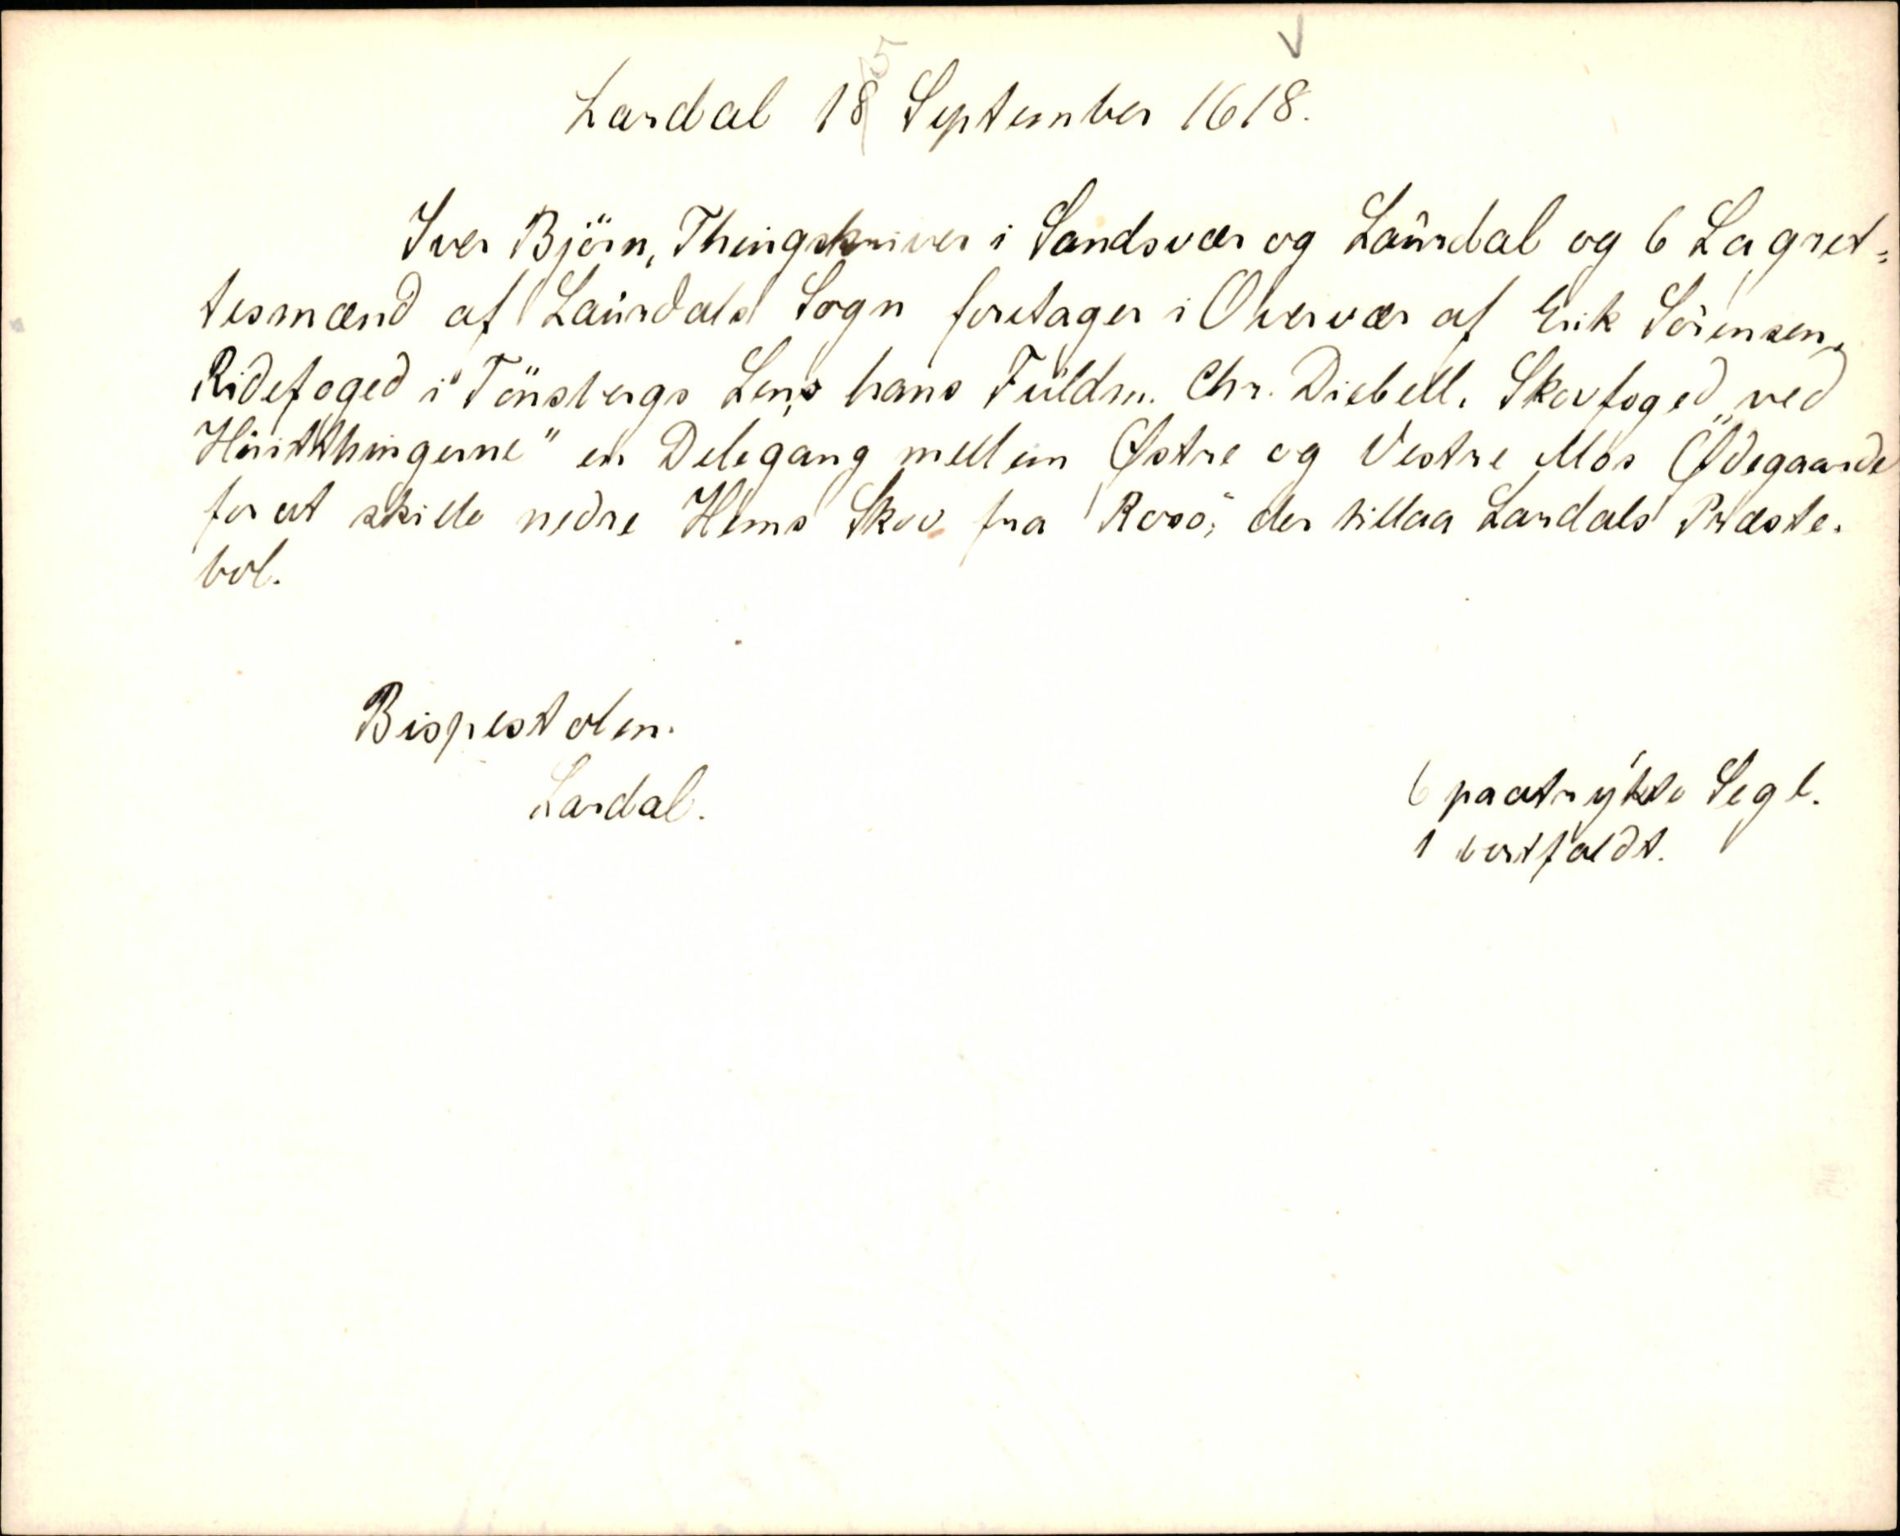 Lardal 18 September 1618.
5
Iver Björn, Thingskriver i Sandsvær og Laurdal og 6 Lagret=
tesmænd af Laurdals Sogn foretager i Overvær af Erik Sörensen,
Ridefoged i Tönsbergs Len, hans Fuldm. Chr. Diebell, Skovfoged "ved
Hiritthingerne" en Delegang mellem Østre og Vestre Mos Ødegaarde
for at skille nedre Hems Skov fra "Rosö", der tillaa Lardals Præste-
bol.
Bispestolen.
Lardal.
6 paatrykte Segl.
1 bortfaldt.